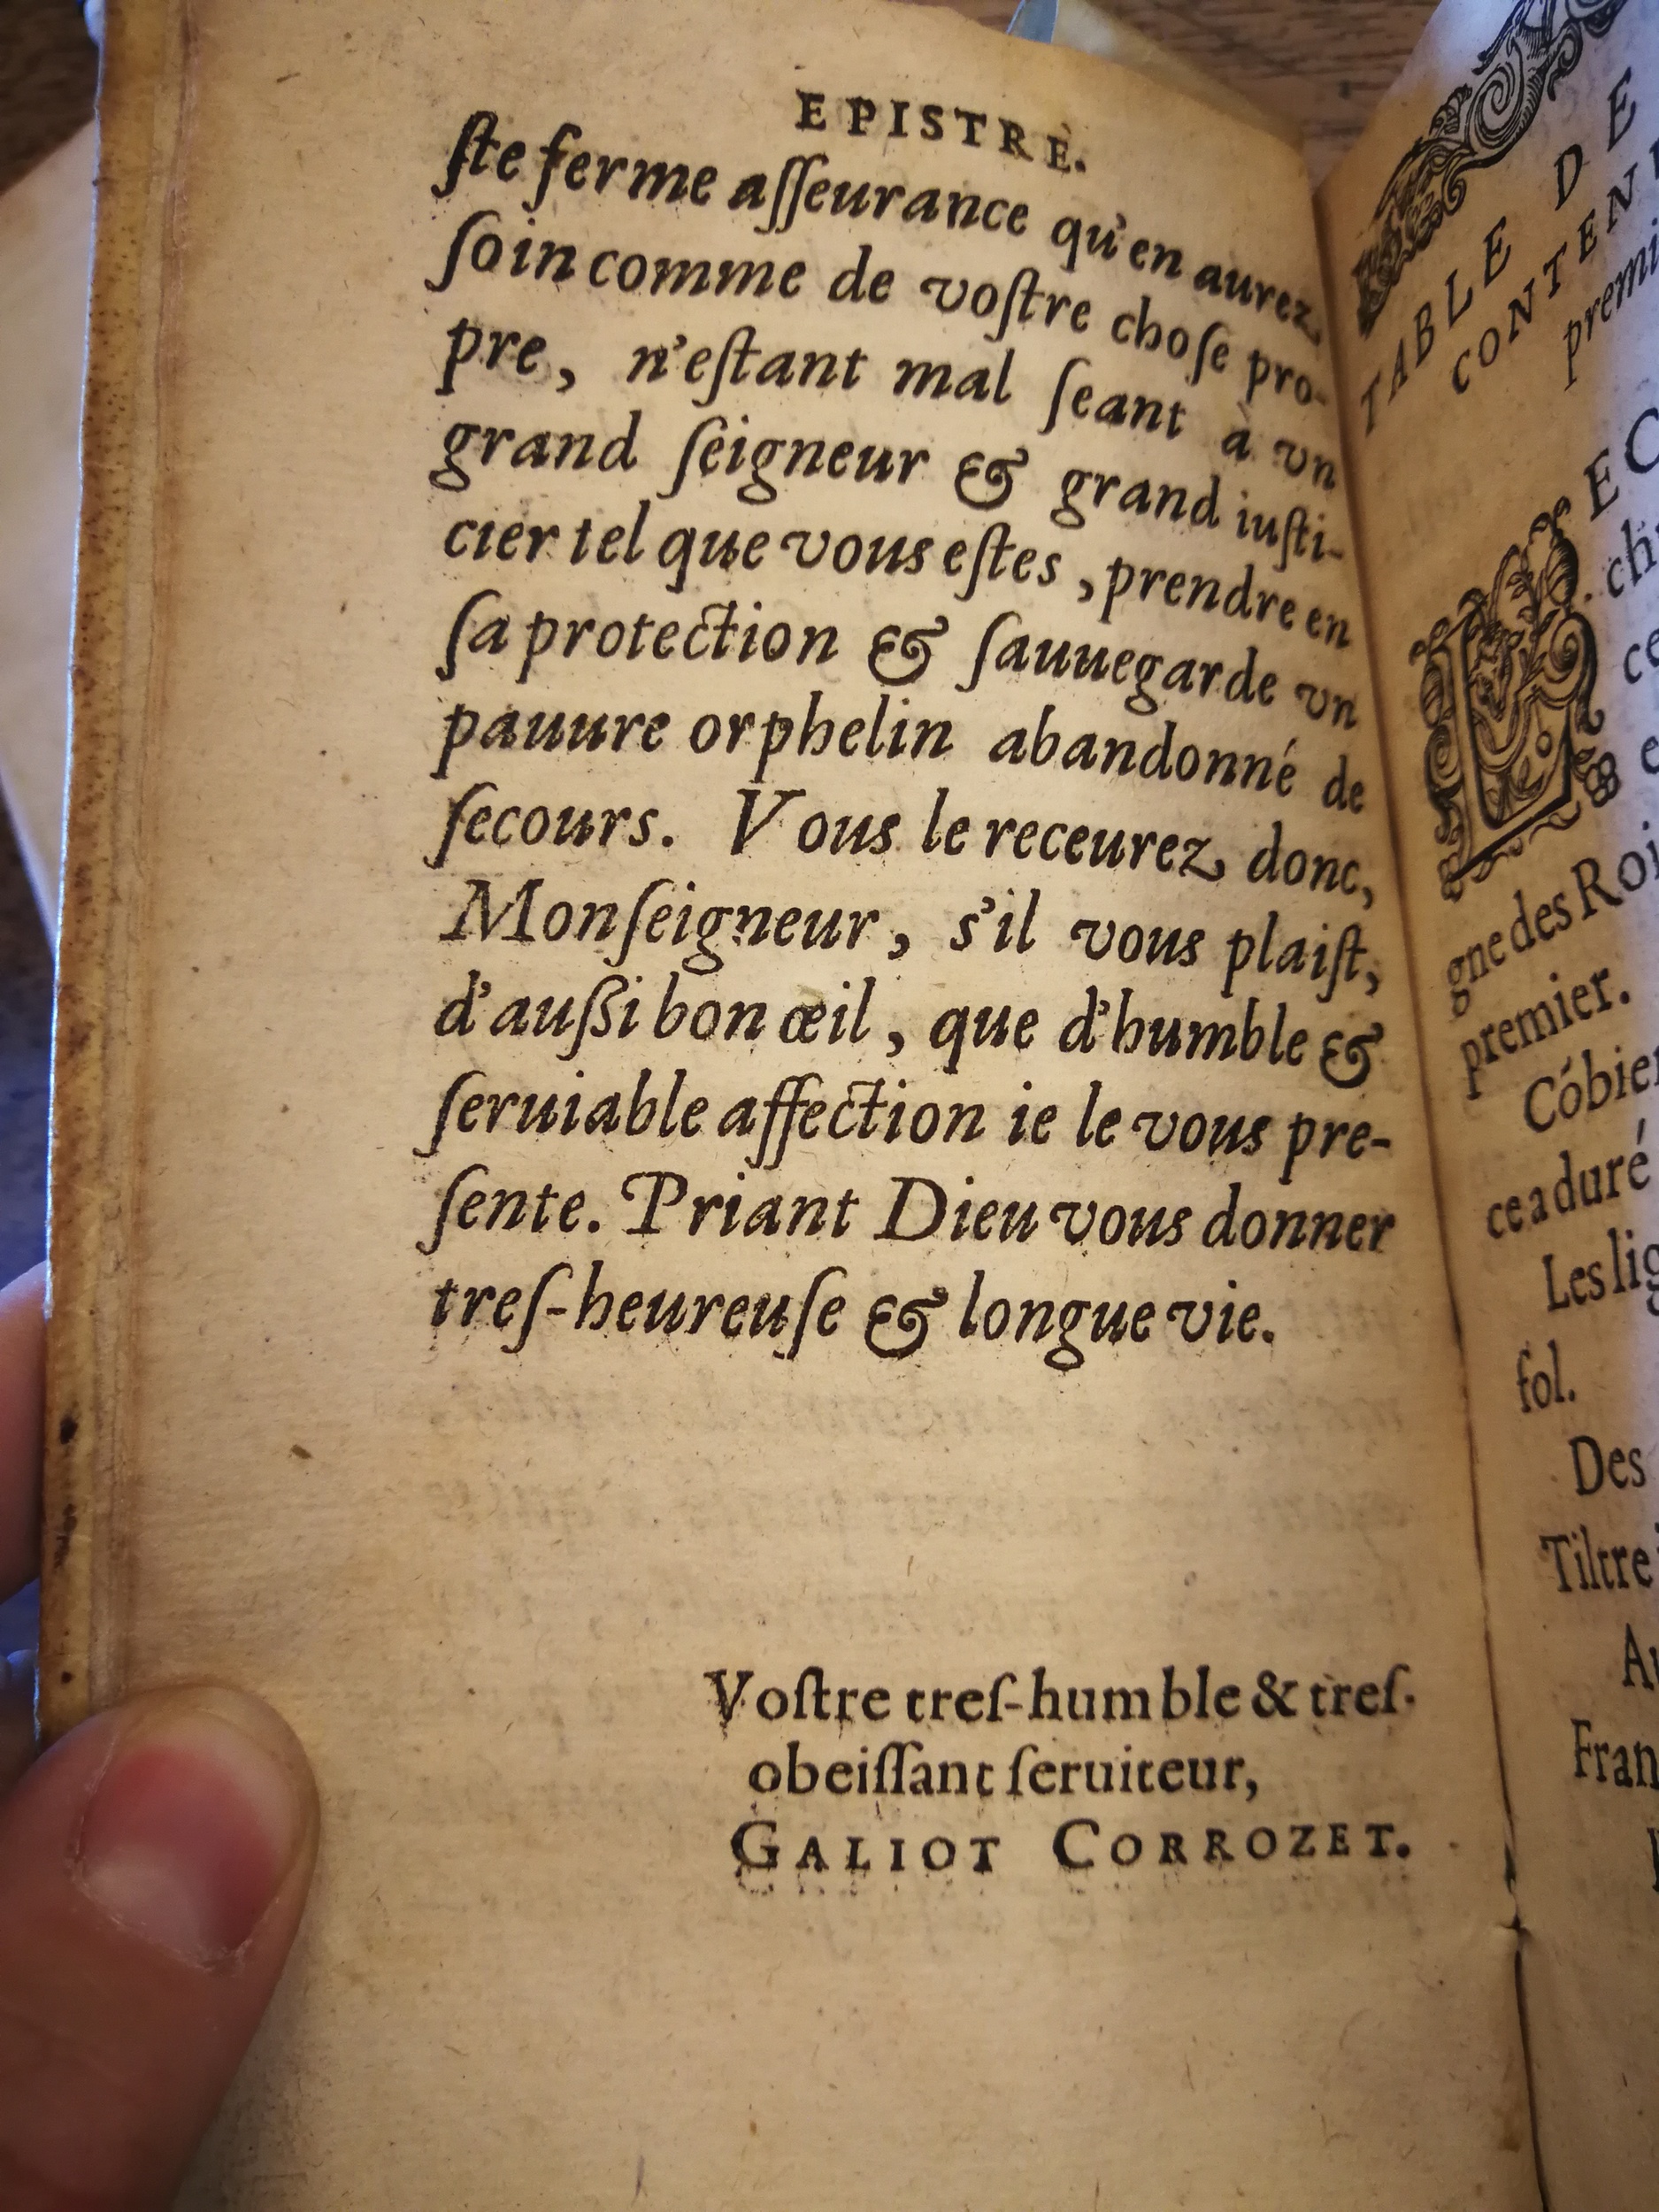 EPISTRE.
ſte ferme aſſeurance qu'en aurez
ſoin comme de voſtre choſe pro-
pre, n'eſtant mal ſeant à vn
grand ſeigneur & grand iuſti-
cier tel que vous eſtes, prendre en
ſa protection & ſauuegarde vn
pauure orphelin abandonné de
ſecours. Vous le receurez donc,
Monſeigneur, s'il vous plaiſt,
d'auſſi bon œil, que d'humble &
ſeruiable affection ie le vous pre-
ſente. Priant Dieu vous donner
treſ-heureuſe & longue vie.
Voſtre treſ-humble & treſ-
obeiſſant ſeruiteur,
GALIOT CORROZET.
TABLE DE
CONTEN
premi
EC
ch
ce
e
gne des Roi
premier.
Cóbie
ce a duré
Les lig
fol.
Des
Tiltre
Au
Fran